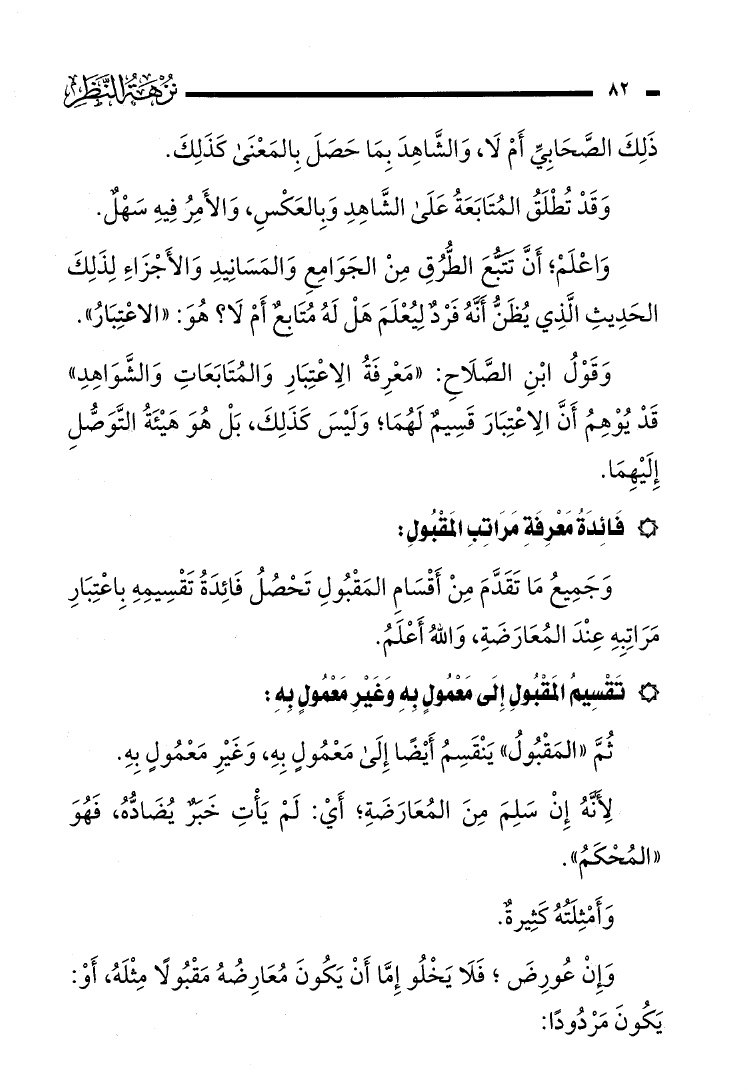 ـ ٨٢ نُزْهَةُ النَّظَرِ
ذَلِكَ الصَّحَابِيِّ أَمْ لَا، وَالشَّاهِدَ بِمَا حَصَلَ بِالمَعْنَىٰ كَذَلِكَ.
وَقَدْ تُطْلَقُ المُتَابَعَةُ عَلَىٰ الشَّاهِدِ وَبِالعَكْسِ، وَالأَمِرُ فِيهِ سَهْلٌ.
وَاعْلَمْ؛ أَنَّ تَتَبُّعَ الطُّرُقِ مِنْ الجَوَامِعِ وَالمَسَانِيدِ وَالأَجْزَاءِ لِذَلِكَ
الحَدِيثِ الَّذِي يُظَنُّ أَنَّهُ فَرْدٌ لِيُعْلَمَ هَلْ لَهُ مُتَابِعٌ أَمْ لَا؟ هُوَ: «الاعْتِبَارُ».
وَقَوْلُ ابْنِ الصَّلَاحِ: «مَعْرِفَةُ الِاعْتِبَارِ وَالمُتَابَعَاتِ وَالشَّوَاهِدِ»
قَدْ يُوْهِمُ أَنَّ الِاعْتِبَارَ قَسِيمٌ لَهُمَا؛ وَلَيْسَ كَذَلِكَ، بَلْ هُوَ هَيْئَةُ التَّوَصُّلِ
إِلَيْهِمَا.
۞ فَائِدَةُ مَعْرِفَةِ مَرَاتِبِ المَقْبُولِ:
وَجَمِيعُ مَا تَقَدَّمَ مِنْ أَقْسَامِ المَقْبُولِ تَحْصُلُ فَائِدَةُ تَقْسِيمِهِ بِاعْتِبَارِ
مَرَاتِبِهِ عِنْدَ المُعَارَضَةِ، وَاللهُ أَعْلَمُ.
۞ تَقْسِيمُ المَقْبُولِ إِلَى مَعْمُولٍ بِهِ وَغَيْرِ مَعْمُولٍ بِهِ:
ثُمَّ «المَقْبُولُ» يَنْقَسِمُ أَيْضًا إِلَىٰ مَعْمُولٍ بِهِ، وَغَيْرِ مَعْمُولٍ بِهِ.
لِأَنَّهُ إِنْ سَلِمَ مِنَ المُعَارَضَةِ؛ أَيْ: لَمْ يَأْتِ خَبَرٌ يُضَادُّهُ، فَهُوَ
«المُحْكَمُ».
وَأَمْثِلَتُهُ كَثِيرَةٌ.
وَإِنْ عُورِضَ ؛ فَلَا يَخْلُو إِمَّا أَنْ يَكُونَ مُعَارِضُهُ مَقْبُولًا مِثْلَهُ، أَوْ:
يَكُونَ مَرْدُودًا: